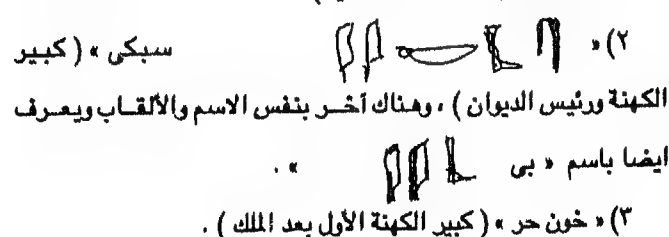 ٢) « 𓋴𓃀𓎡𓇌 سبكى » ( كبير
الكهنة ورئيس الديوان ) ، وهناك آخر بنفس الاسم والألقاب ويعرف
ايضا باسم « بى 𓃀𓇌 » .
٣) « خون حر » ( كبير الكهنة الأول بعد الملك ) .